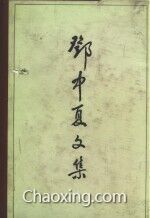 鄧中夏文集
Chaoxing.com